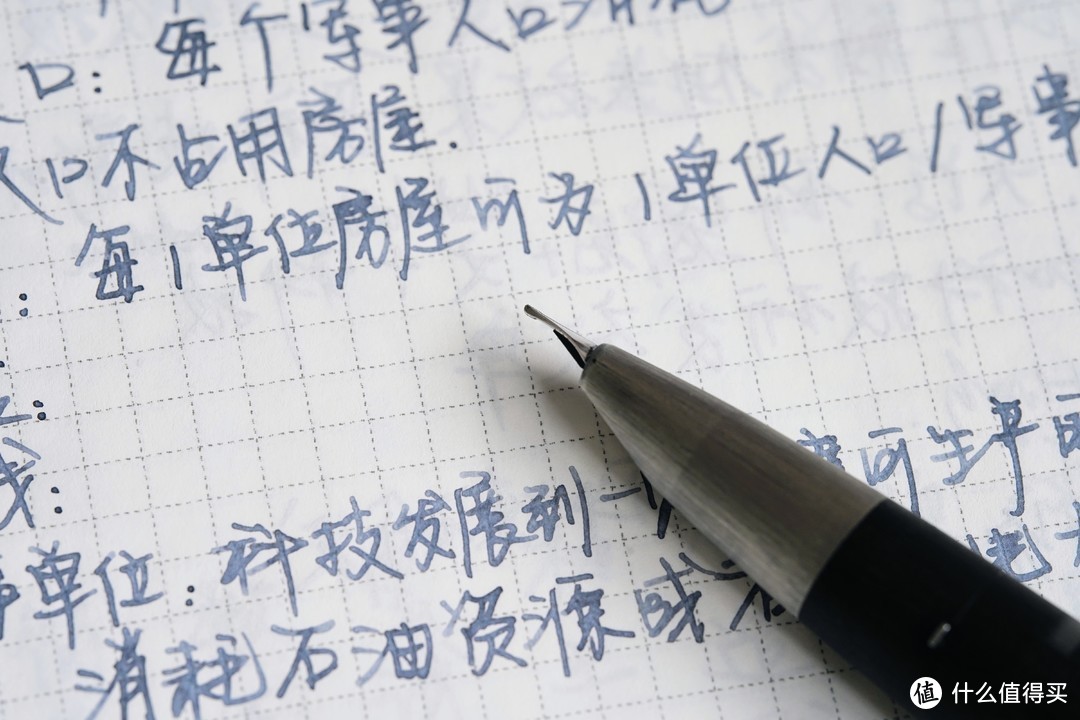 口：每个军事人口消
人口不占用房屋.
每1单位房屋可为1单位人口/军事
：
：
线：
单位：科技发展到一 可生产
消耗石油资源或者
值 什么值得买